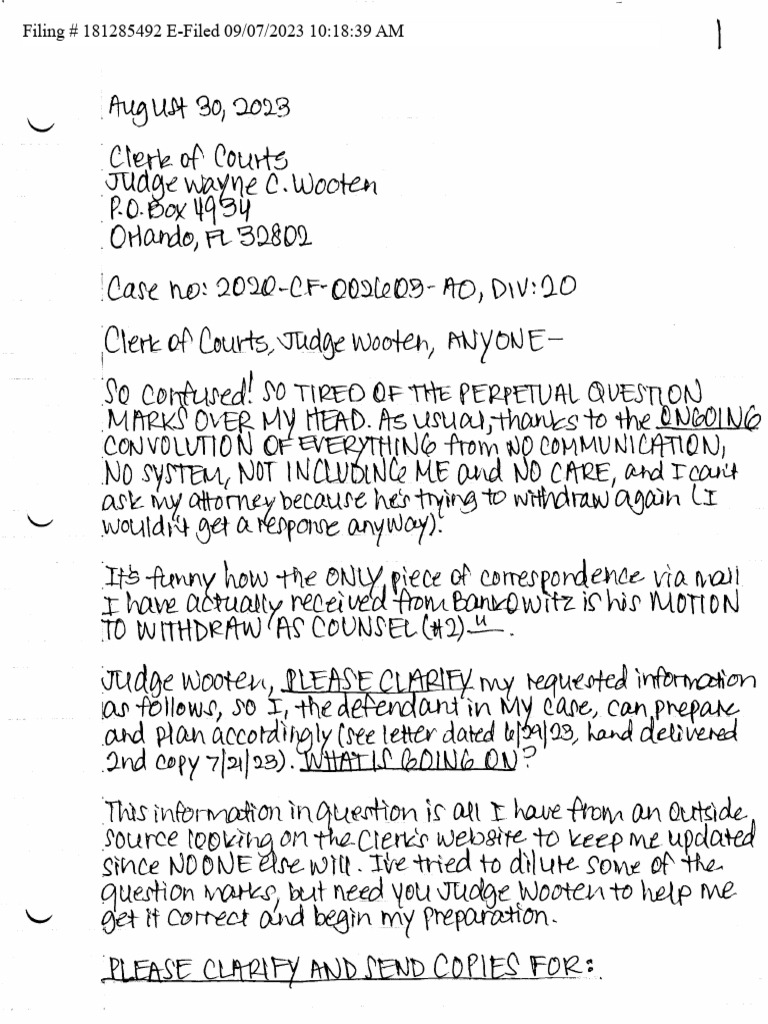 Filing # 181285492 E-Filed 09/07/2023 10:18:39 AM
1
August 30, 2023
Clerk of Courts
Judge Wayne C. Wooten
P.O. Box 4934
Orlando, FL 32802
Case no: 2020-CF-002603-AO, DIV: 20
Clerk of Courts, Judge Wooten, ANYONE-
So confused! SO TIRED OF THE PERPETUAL QUESTION
MARKS OVER MY HEAD. As usual, thanks to the ONGOING
CONVOLUTION OF EVERYTHING from NO COMMUNICATION,
NO SYSTEM, NOT INCLUDING ME and NO CARE, and I can't
ask my attorney because he's trying to withdraw again (I
wouldn't get a response anyway).
It's funny how the ONLY piece of correspondence via mail
I have actually received from Bankowitz is his MOTION
TO WITHDRAW AS COUNSEL (#2) .
Judge Wooten, PLEASE CLARIFY my requested information
as follows, so I, the defendant in my case, can prepare
and plan accordingly (see letter dated 6/29/23, hand delivered
2nd copy 7/21/23). WHAT IS GOING ON?
This information in question is all I have from an outside
source looking on the Clerk's website to keep me updated
since NO ONE else will. I've tried to dilute some of the
question marks, but need you Judge Wooten to help me
get it correct and begin my preparation.
PLEASE CLARIFY AND SEND COPIES FOR: